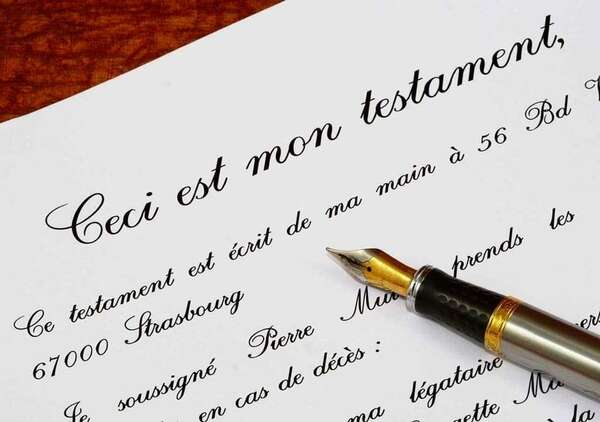 Ceci est mon testament,
Ce testament est écrit de ma main à 56 Bd
67000 Strasbourg
Je soussigné Pierre prends les
en cas de décès :
ma légataire
à la